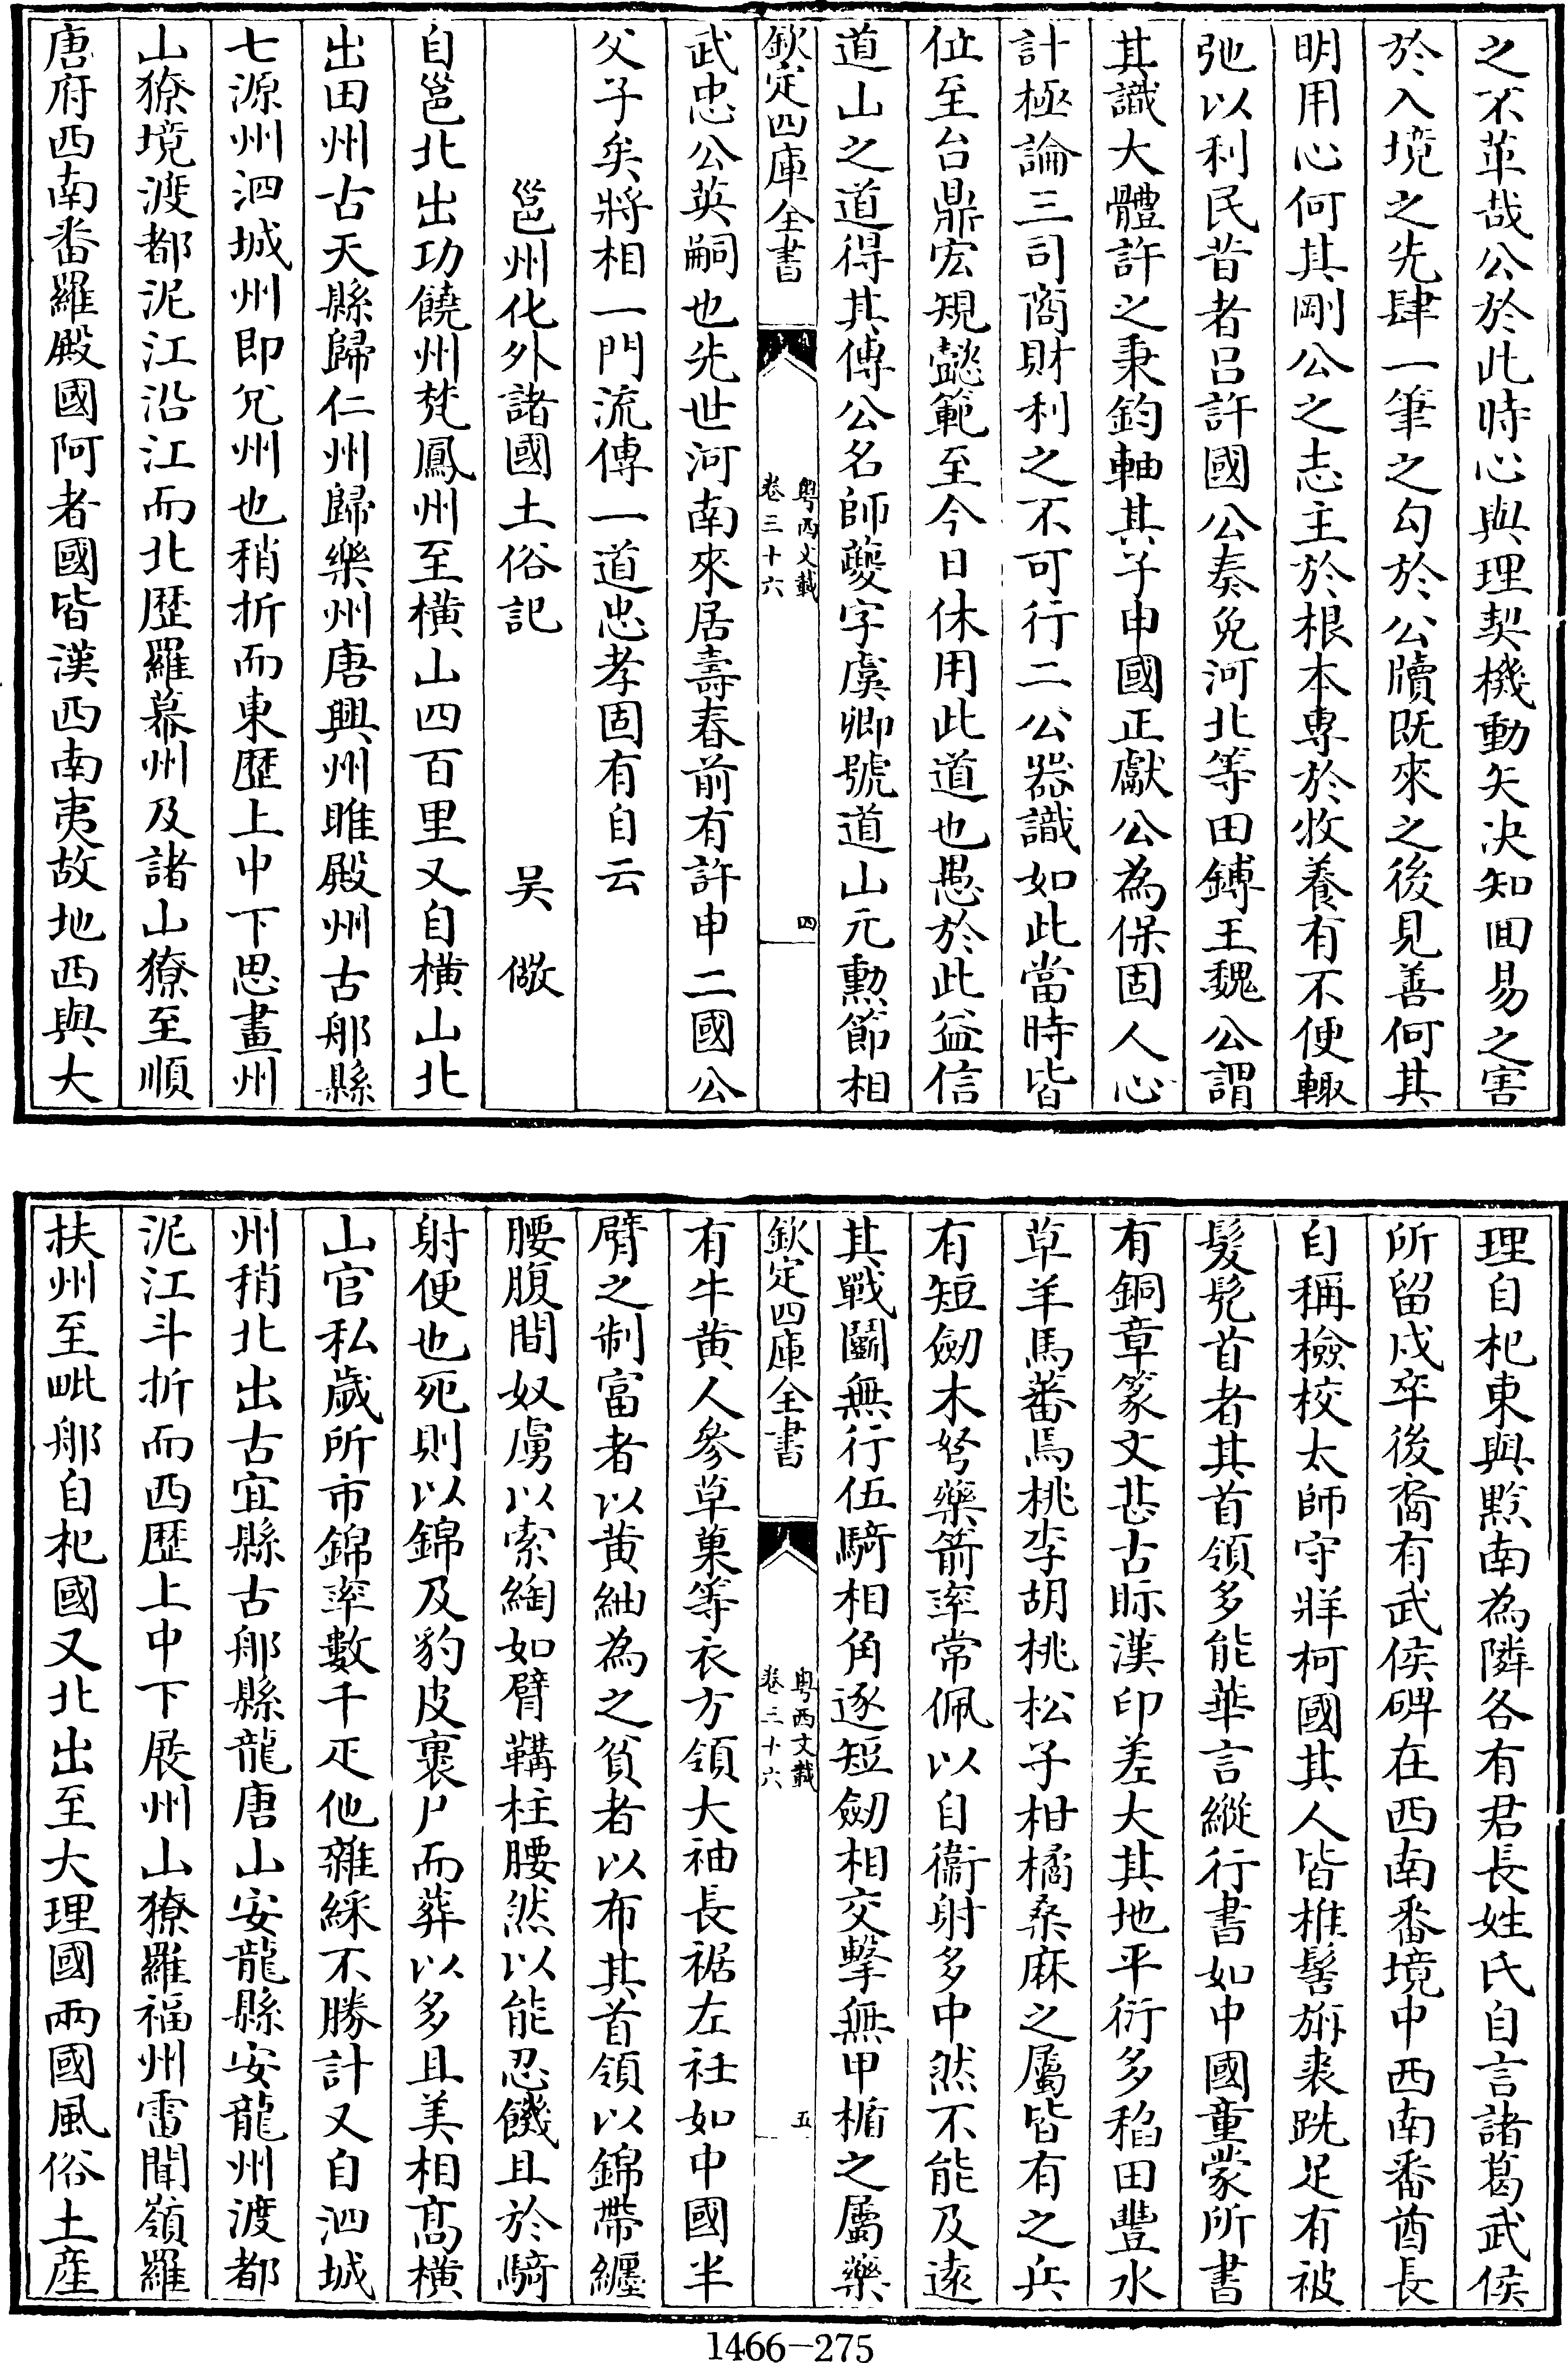 之不革哉公於此時心與理契機動矢决知囬易之害
於入境之先肆一筆之勾於公牘既來之後見善何其
明用心何其剛公之志主於根本專於牧養有不便輙
弛以利民昔者吕許國公奏免河北等田鎛王魏公謂
其識大體許之秉鈞軸其子申國正獻公為保固人心
計極論三司商財利之不可行二公器識如此當時皆
位至台鼎宏規懿範至今日休用此道也愚於此益信
道山之道得其傳公名師夔字虞卿號道山元勲節相
欽定四庫全書
粤西文載
卷三十六
四
武忠公英嗣也先世河南來居壽春前有許申二國公
父子矣將相一門流傳一道忠孝固有自云
邕州化外諸國土俗記 吴儆
自邕北出功饒州梵鳳州至橫山四百里又自橫山北
出田州古天縣歸仁州歸樂州唐興州睢殿州古郍縣
七源州泗城州即兊州也稍折而東歴上中下思畫州
山獠境渡都泥江沿江而北歴羅幕州及諸山獠至順
唐府西南番羅殿國阿者國皆漢西南夷故地西與大
理自杞東與黔南為隣各有君長姓氏自言諸葛武侯
所留戍卒後裔有武侯碑在西南番境中西南番酋長
自稱檢校太師守牂柯國其人皆椎髻旃裘跣足有被
髮髠首者其首領多能華言縱行書如中國童蒙所書
有銅章篆文甚古眎漢印差大其地平衍多稻田豐水
草羊馬蕃焉桃李胡桃松子柑橘桑麻之屬皆有之兵
有短劒木弩藥箭率常佩以自衞射多中然不能及逺
其戰鬭無行伍騎相角逐短劒相交擊無甲楯之屬藥
欽定四庫全書
粤西文載
卷三十六
五
有牛黄人參草菓等衣方領大袖長裾左衽如中國半
臂之制富者以黄紬為之貧者以布其首領以錦帶纒
腰腹間奴虜以索綯如臂鞲柱腰然以能忍饑且於騎
射便也死則以錦及豹皮裹尸而葬以多且美相髙橫
山官私歲所市錦率數千疋他雜綵不勝計又自泗城
州稍北出古宜縣古郍縣龍唐山安龍縣安龍州渡都
泥江斗折而西歴上中下展州山獠羅福州雷聞嶺羅
扶州至毗郍自杞國又北出至大理國兩國風俗土産
1466-275